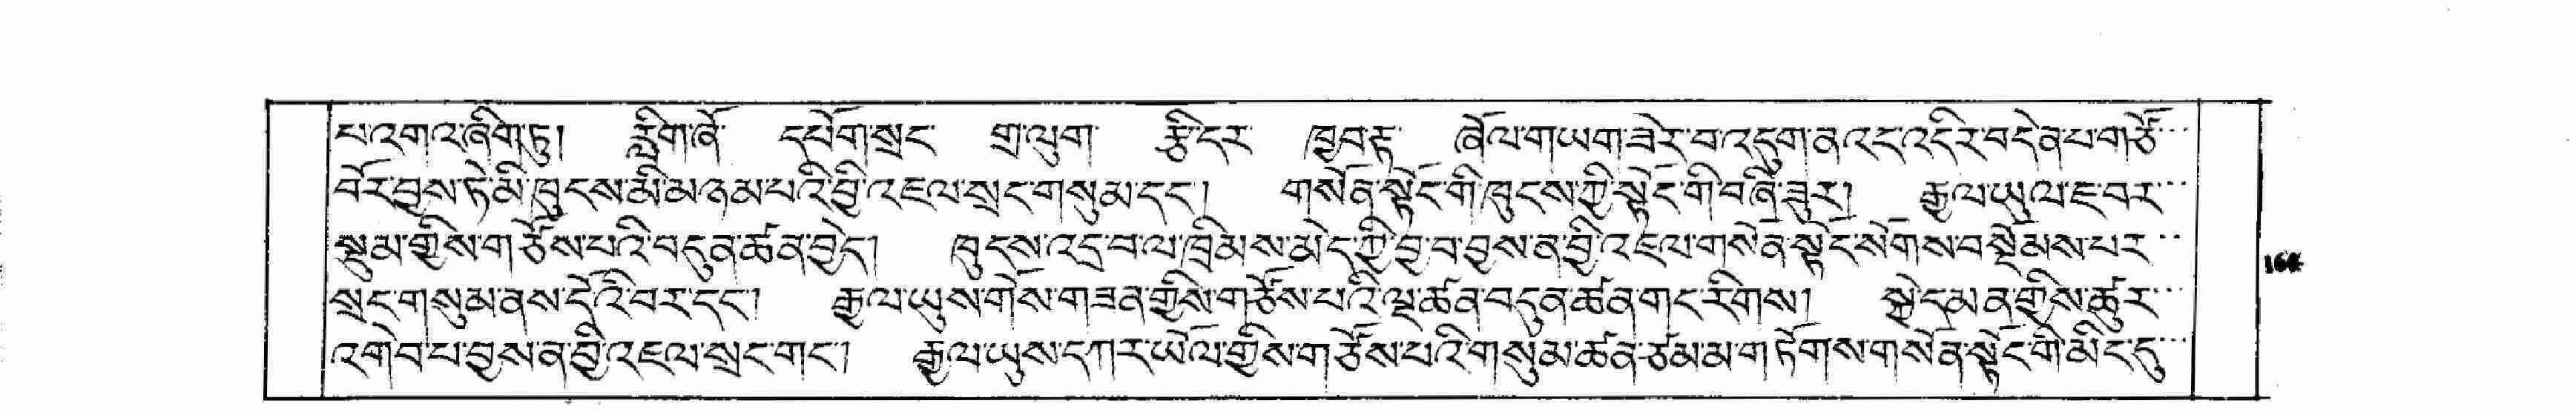 པ་འགའ་ཞིག་ཏུ། རྨིག་ཞོ་ དཔོག་སྲང་ གྲ་ལུག་ རྩི་དེར་ ཁྱབ་རྟ་ ཞོལ་གཡག་ཟེར་བ་འདུག་ན་འང་འདིར་བདེན་པ་གཙོ་
བོར་བྱས་ཏེ་མི་ཁུངས་མི་མཉམ་པའི་བྱི་འཇལ་སྲང་གསུམ་དང་། གསོན་སྟོང་གི་ཁུངས་ཀྱི་སྟོང་གི་བཞི་ཟུར། རྒྱལ་ཡུལ་ཇ་བར་
སྡུམ་གྱིས་གཙོས་པའི་བདུན་ཚན་བྱེད། ཁུངས་འདྲ་བ་ལ་ཁྲིམས་མེད་ཀྱི་བྱ་བ་བྱས་ན་བྱི་འཇལ་གསེན་སྟོང་སོགས་བསྡོམས་པར་
སྲང་གསུམ་ནས་དོའི་བར་དང་། རྒྱལ་ཡུས་གོས་གཟན་གྱིས་གཙོས་པའི་ལྔ་ཚན་བདུན་ཚན་གང་རིགས། སྐྱེདམན་གྱིས་ཚུར་
འགེབ་པ་བྱས་ན་བྱི་འཇལ་སྲང་གང་། རྒྱལ་ཡུས་དཀར་ཡོལ་གྱིས་གཙོས་པའི་གསུམ་ཚན་ཙམ་མ་གཏོགས་གསོན་སྟོང་གི་མིང་དུ་
164